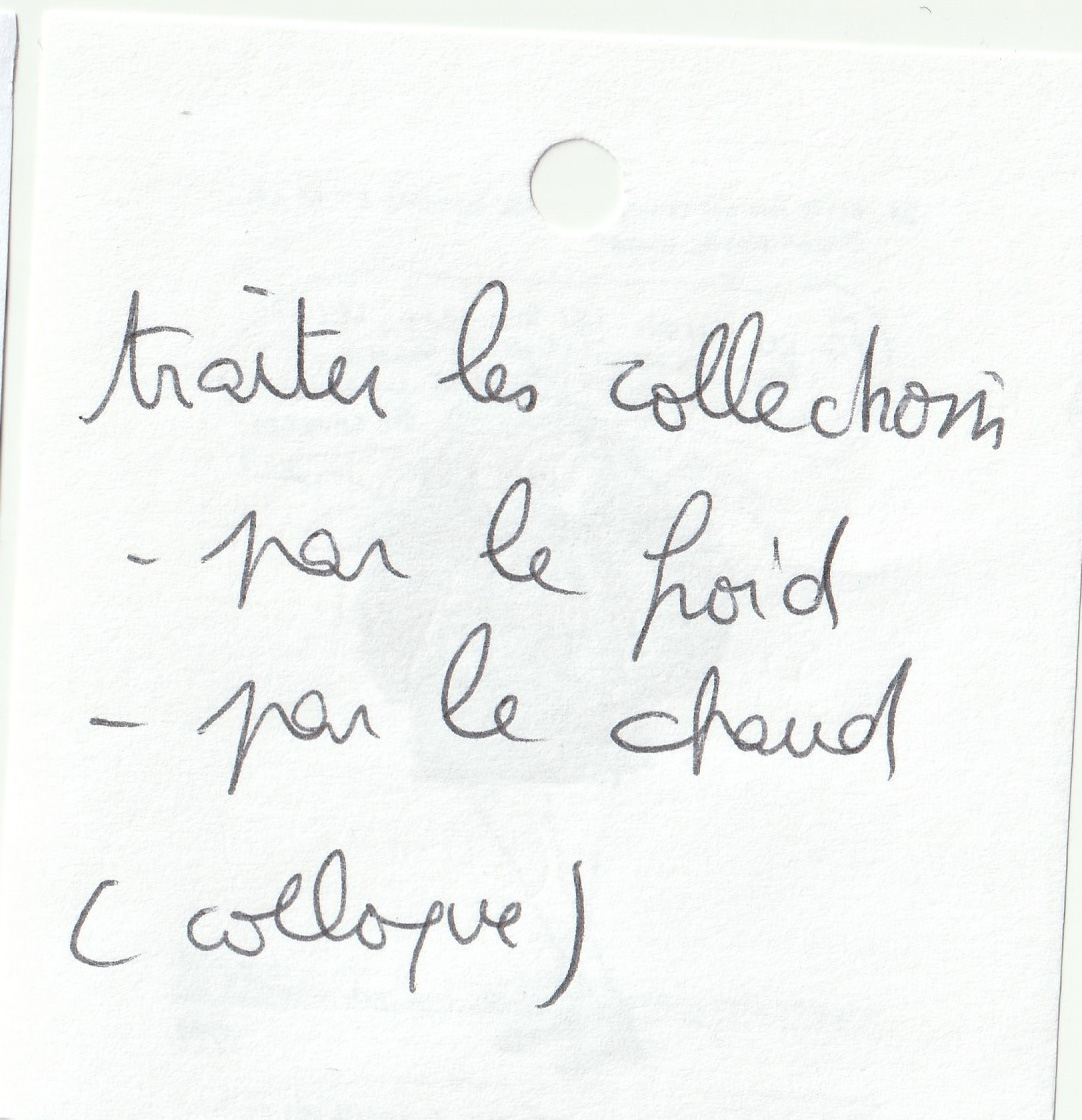 traiter les collections
- par le froid
- par le chaud
(colloque)